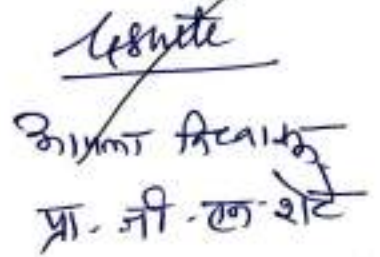 आपला विश्वासू
प्रा. जी. एन. शेटे